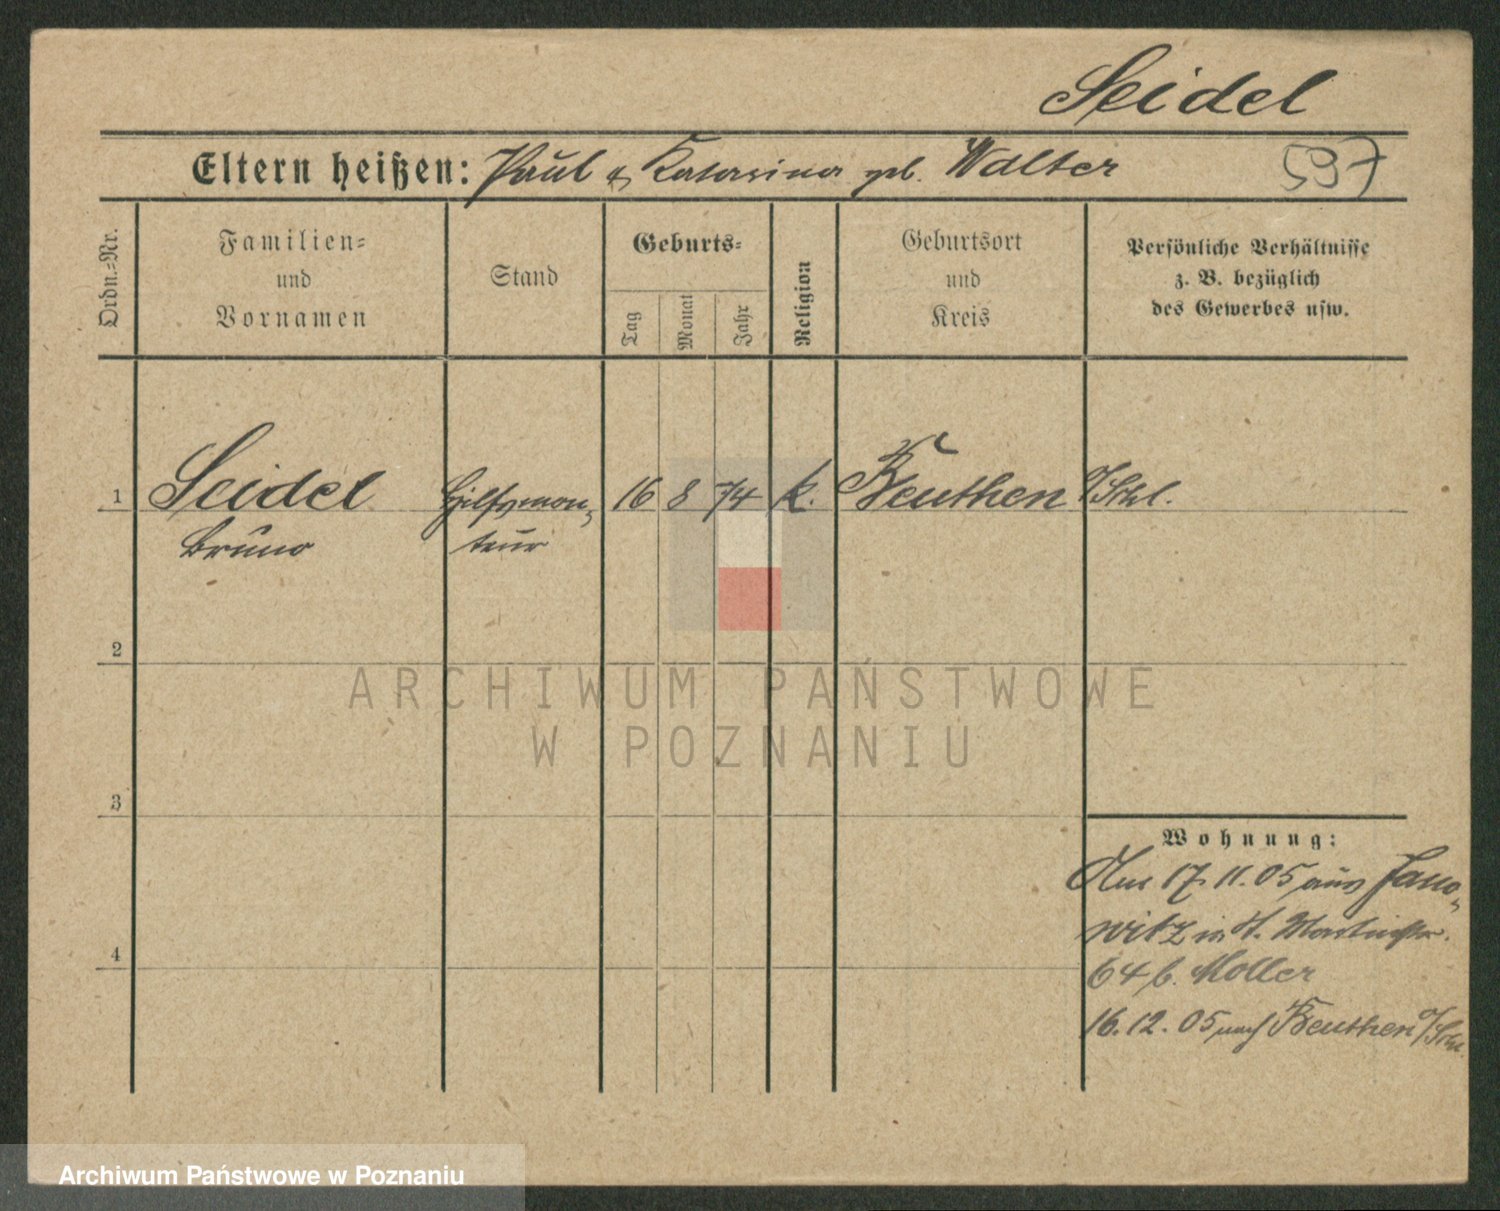 Seidel
Eltern heißen: Paul & Katarina geb. Walter 597
Ordn.-Nr.
Familien-
und
Vornamen
Stand
Geburts-
Tag
Monat
Jahr
Religion
Geburtsort
und
Kreis
Persönliche Verhältnisse
z. B. bezüglich
des Gewerbes usw.
1 Seidel Hilfsmon- 16 8 74 k. Beuthen O/Schl.
Bruno teur
2
ARCHIWUM PAŃSTWOWE
W POZNANIU
3
Wohnung:
Am 17. 11. 05 aus Jano-
4 witz in St. Martinstr.
64 b. Moller
16. 12. 05 nach Beuthen O/Schl.
Archiwum Państwowe w Poznaniu